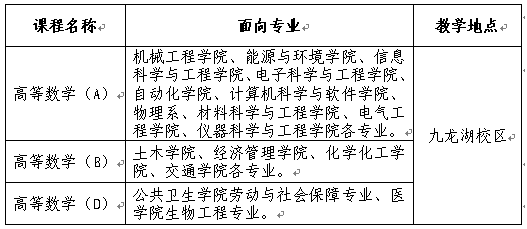 课程名称 面向专业 教学地点
机械工程学院、能源与环境学院、信息
科学与工程学院、电子科学与工程学院、
高等数学（A） 自动化学院、计算机科学与软件学院、
物理系、材料科学与工程学院、电气工
程学院、仪器科学与工程学院各专业。
九龙湖校区
高等数学（B） 土木学院、经济管理学院、化学化工学
院、交通学院各专业。
高等数学（D） 公共卫生学院劳动与社会保障专业、医
学院生物工程专业。